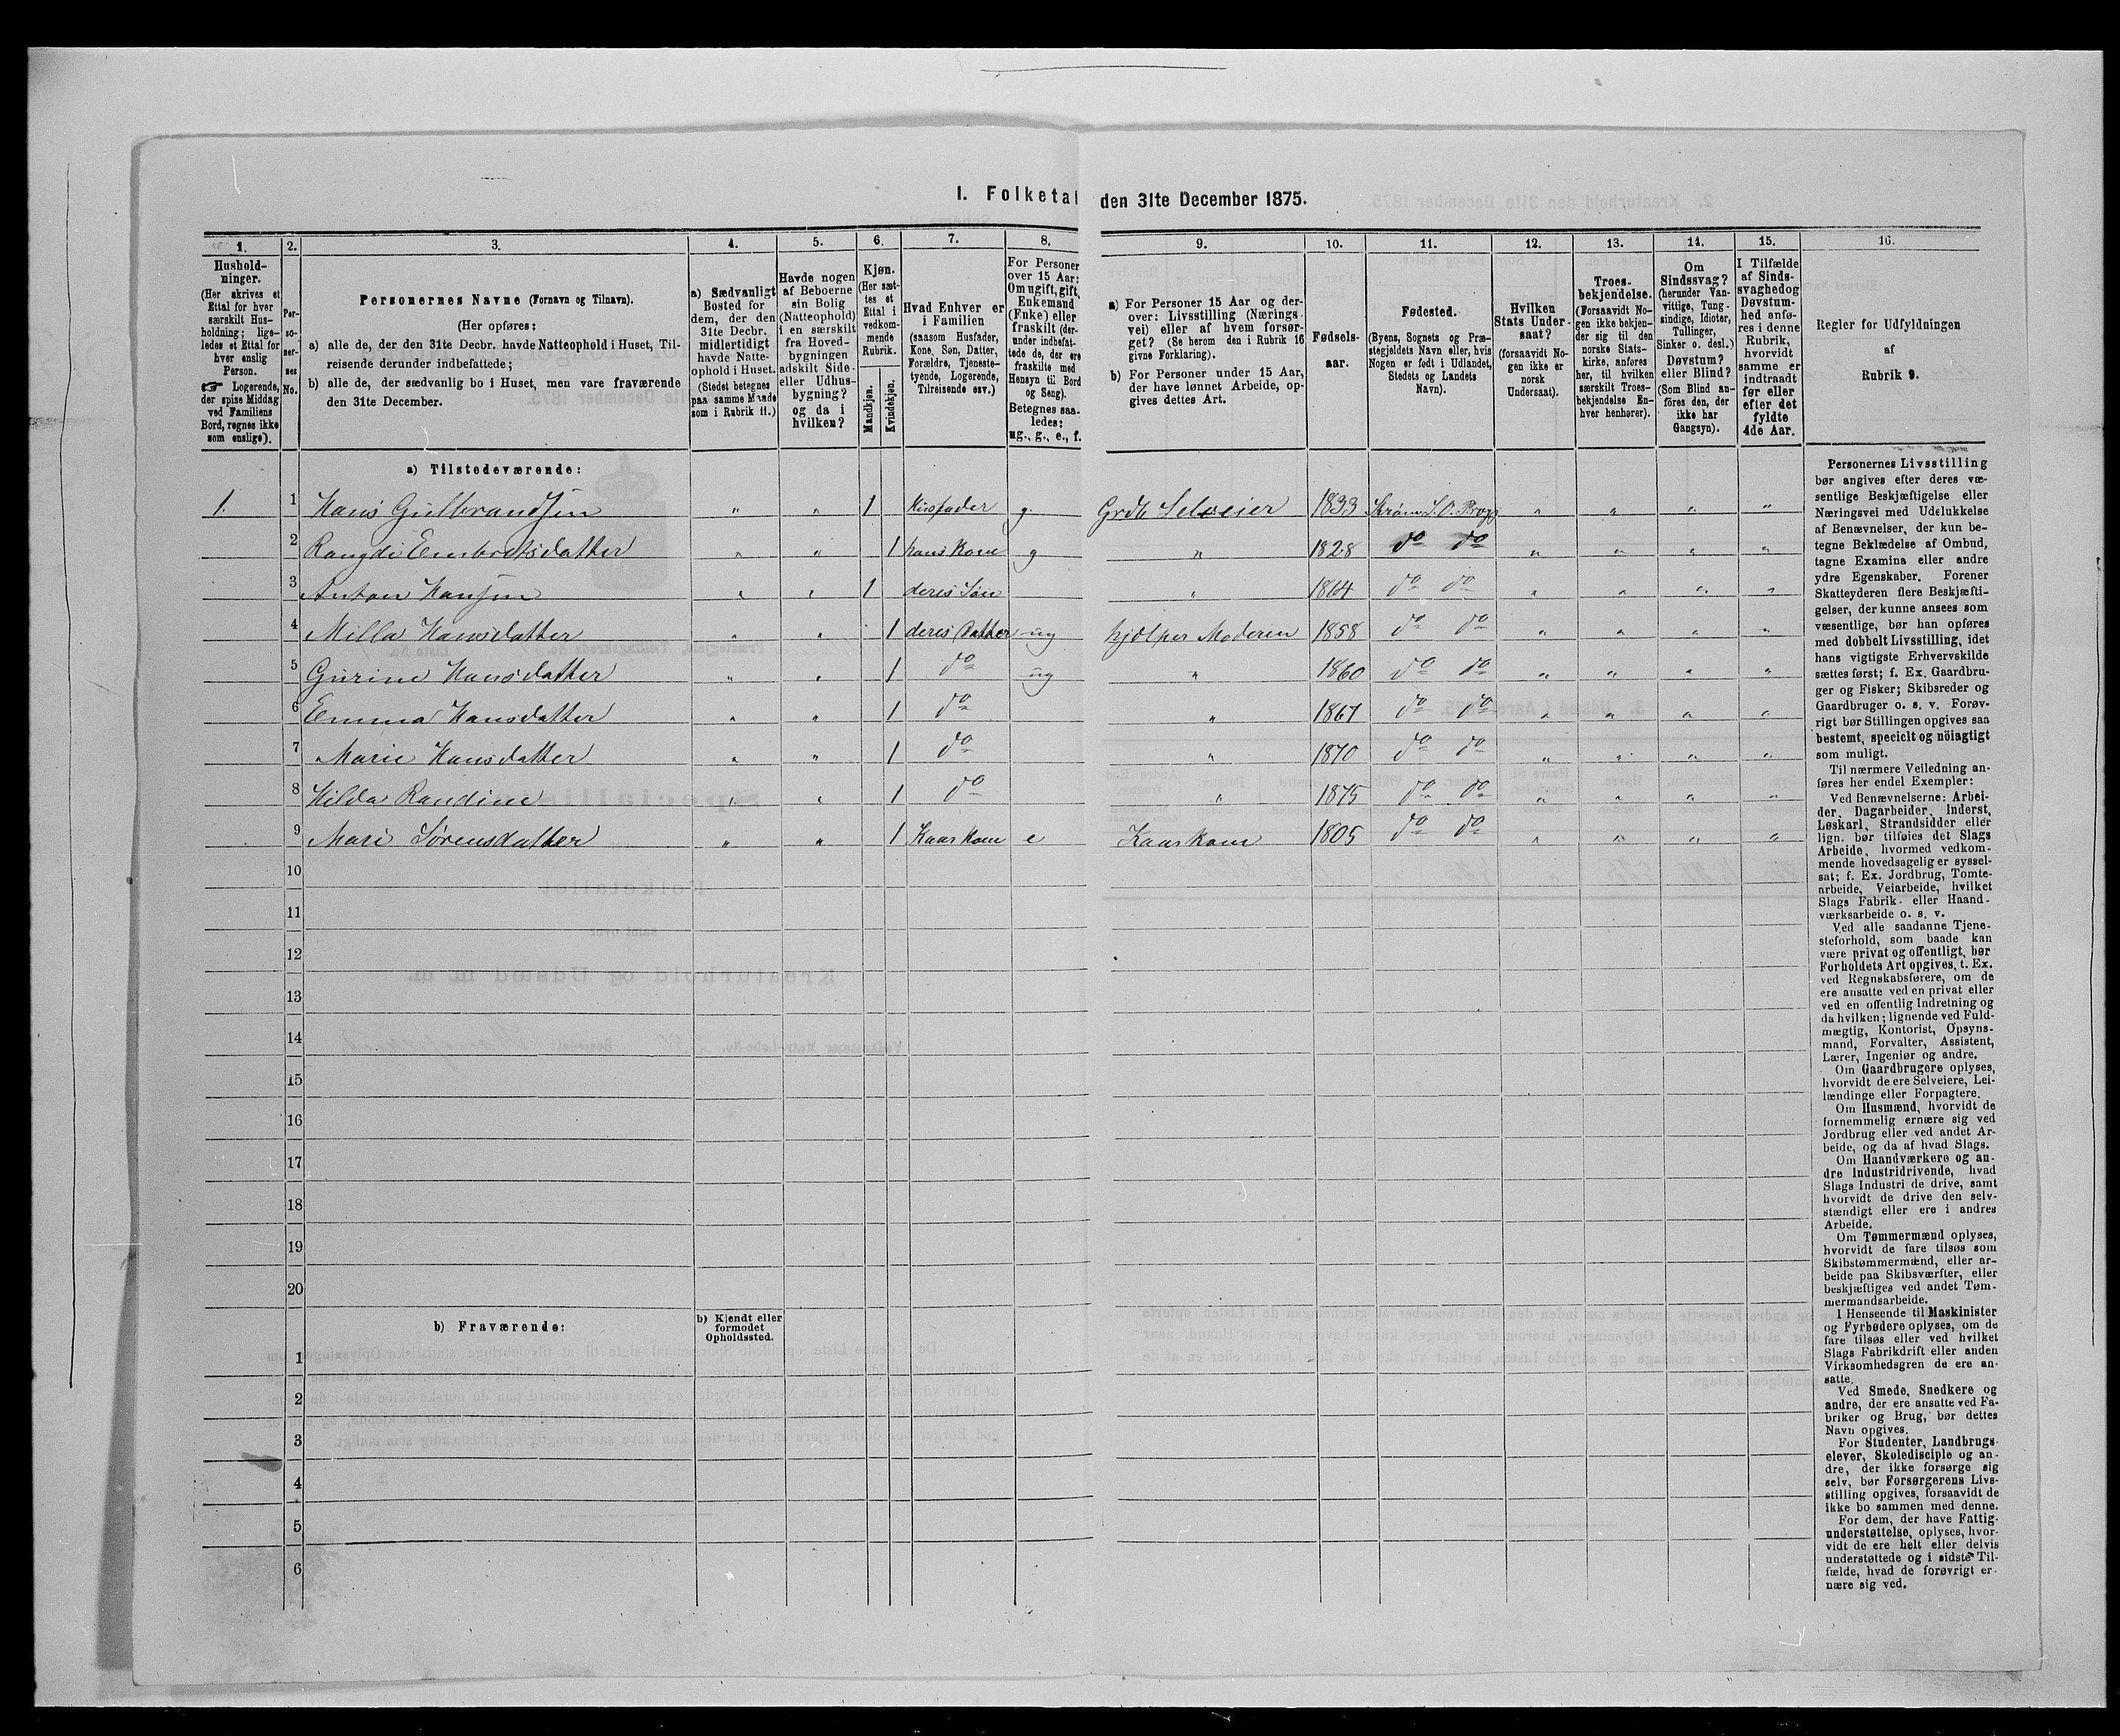 I. Folketal den 31te December 1875.
1. 2. 3. 4. 5. 6. 7. 8. 9. 10. 11. 12. 13. 14. 15. 16.
Husholdninger.
(Her skrives et
Ettal for hver
særskilt Hus-
holdning; lige-
ledes et Ettal for
hver enslig
Person.
☞ Logerende,
der spise Middag
ved Familiens
Bord, regnes ikke
som enslige).
Per-
so-
ner-
nes
No.
Personernes Navne (Fornavn og Tilnavn).
(Her opføres:
a) alle de, der den 31te Decbr. havde Natteophold i Huset, Til-
reisende derunder indbefattede;
b) alle de, der sædvanlig bo i Huset, men vare fraværende
den 31te December.
a) Sædvanligt
Bosted for
dem, der den
31te Decbr.
midlertidigt
havde Natte-
ophold i Huset.
(Stedet betegnes
paa samme Maade
som i Rubrik 11.)
Havde nogen
af Beboerne
sin Bolig
(Natteophold)
i en særskilt
fra Hoved-
bygningen
adskilt Side-
eller Udhus-
bygning?
og da i
hvilken?
Kjøn.
(Her sæt-
tes et
Ettal i
vedkom-
mende
Rubrik.
Mandkjøn.
Kvindekjøn.
Hvad Enhver er
i Familien
(saasom Husfader,
Kone, Søn, Datter,
Forældre, Tjeneste-
tyende, Logerende,
Tilreisende osv.)
For Personer
over 15 Aar:
Om ugift, gift,
Enkemand
(Enke) eller
fraskilt (der-
under indbefat-
tede de, der ere
fraskilte med
Hensyn til Bord
og Seng).
Betegnes saa-
ledes:
ug., g., e., f.
a) For Personer 15 Aar og der-
over: Livsstilling (Nærings-
vei) eller af hvem forsør-
get? (Se herom den i Rubrik 16
givne Forklaring).
b) For Personer under 15 Aar,
der have lønnet Arbeide, op-
gives dettes Art.
Fødsels-
aar.
Fødested.
(Byens, Sognets og Præ-
stegjeldets Navn eller, hvis
Nogen er født i Udlandet,
Stedets og Landets
Navn).
Hvilken
Stats Under-
saat?
(forsaavidt No-
gen ikke er
norsk
Undersaat).
Troes-
bekjendelse.
(Forsaavidt No-
gen ikke bekjen-
der sig til den
norske Stats-
kirke, anføres
her, til hvilken
særskilt Troes-
bekjendelse En-
hver henhører).
Om
Sindssvag?
(herunder Van-
vittige, Tung-
sindige, Idioter,
Tullinger,
Sinker o. desl.)
Døvstum?
eller Blind?
(Som Blind an-
føres den, der
ikke har
Gangsyn).
I Tilfælde
af Sinds-
svaghed og
Døvstum-
hed anfø-
res i denne
Rubrik,
hvorvidt
samme er
indtraadt
før eller
efter det
fyldte
4de Aar.
Regler for Udfyldningen
af
Rubrik 9.
a) Tilstedeværende:
1. 1 Hans Gulbrandsen " " 1 Husfader g. Grdb Selveier 1833 " " " "
2 Rangdi Embretsdatter " " 1 hans Kone g " 1828 do do " " " "
3 Anton Hansen " " 1 deres Søn " 1864 do do " " " "
4 Milla Hansdatter " " 1 deres Datter ug hjælper Moderen 1858 do do " " " "
5 Gurine Hansdatter " " 1 do ug " 1860 do do " " " "
6 Emma Hansdatter " " 1 do " 1867 do do " " " "
7 Marie Hansdatter " " 1 do " 1870 do do " " " "
8 Hilda Randine " " 1 do " 1875 do do " " " "
9 Mari Sørensdatter " " 1 Kaarkone e Kaarkone 1805 do do " " " "
10
11
12
13
14
15
16
17
18
19
20
b) Fraværende:
b) Kjendt eller
formodet
Opholdssted.
1
2
3
4
5
6
Personernes Livsstilling
bør angives efter deres væ-
sentlige Beskjæftigelse eller
Næringsvei med Udelukkelse
af Benævnelser, der kun be-
tegne Beklædelse af Ombud,
tagne Examina eller andre
ydre Egenskaber. Forener
Skatteyderen flere Beskjæfti-
gelser, der kunne ansees som
væsentlige, bør han opføres
med dobbelt Livsstilling, idet
hans vigtigste Erhvervskilde
sættes først; f. Ex. Gaardbru-
ger og Fisker; Skibsreder og
Gaardbruger o. s. v. Forøv-
rigt bør Stillingen opgives saa
bestemt, specielt og nöiagtigt
som muligt.
Til nærmere Veiledning an-
føres her endel Exempler:
Ved Benævnelserne: Arbei-
der, Dagarbeider, Inderst,
Løskarl, Strandsidder eller
lign. bør tilføies det Slags
Arbeide, hvormed vedkom-
mende hovedsagelig er syssel-
sat; f. Ex. Jordbrug, Tomte-
arbeide, Veiarbeide, hvilket
Slags Fabrik- eller Haand-
værksarbeide o. s. v.
Ved alle saadanne Tjene-
steforhold, som baade kan
være privat og offentligt, bør
Forholdets Art opgives, t. Ex.
ved Regnskabsførere, om de
ere ansatte ved en privat eller
ved en offentlig Indretning og
da hvilken; lignende ved Fuld-
mægtig, Kontorist, Opsyns-
mand, Forvalter, Assistent,
Lærer, Ingeniør og andre.
Om Gaardbrugere oplyses,
hvorvidt de ere Selveiere, Lei-
lændinge eller Forpagtere.
Om Husmænd, hvorvidt de
fornemmelig ernære sig ved
Jordbrug eller ved andet Ar-
beide, og da af hvad Slags.
Om Haandværkere og an-
dre Industridrivende, hvad
Slags Industri de drive, samt
hvorvidt de drive den selv-
stændigt eller ere i andres
Arbeide.
Om Tømmermænd oplyses,
hvorvidt de fare tilsøs som
Skibstømmermænd, eller ar-
beide paa Skibsværfter, eller
beskjæftiges ved andet Tøm-
mermandsarbeide.
I Henseende til Maskinister
og Fyrbødere oplyses, om de
fare tilsøs eller ved hvilket
Slags Fabrikdrift eller anden
Virksomhedsgren de ere an-
satte.
Ved Smede, Snedkere og
andre, der ere ansatte ved Fa-
briker og Brug, bør dettes
Navn opgives.
For Studenter, Landbrugs-
elever, Skoledisciple og an-
dre, der ikke forsørge sig
selv, bør Forsørgerens Livs-
stilling opgives, forsaavidt de
ikke bo sammen med denne.
For dem, der have Fattig-
understøttelse, oplyses, hvor-
vidt de ere helt eller delvis
understøttede og i sidste Til-
fælde, hvad de forøvrigt er-
nære sig ved.